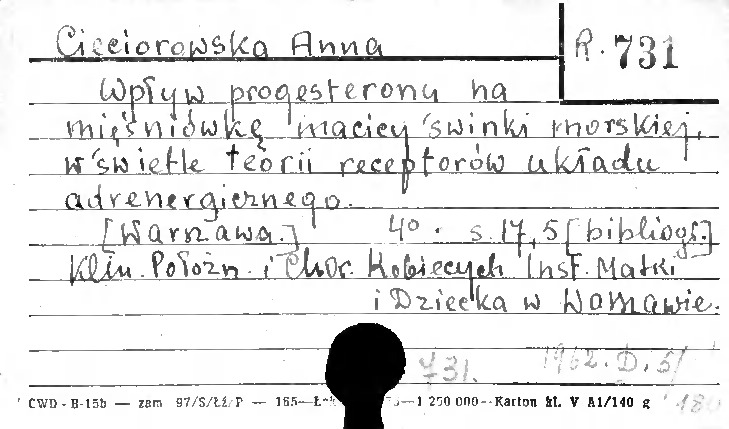 Cieciorowska Anna
R. 731
Wpływ progesteronu na
mięśniówkę macicy świnki morskiej,
w świetle teorii receptorów układu
adrenergicznego.
[Warszawa.] 4° . s. 17, 5 [bibliogr.]
Klin. Położn. i Chor. Kobiecych Inst. Matki
i Dziecka w Warszawie.
731. 1962. D. 5/
CWD - B-15b — zam 97/S/Łź/P — 165— —1 250 000--Karton kl. V A1/140 g 180